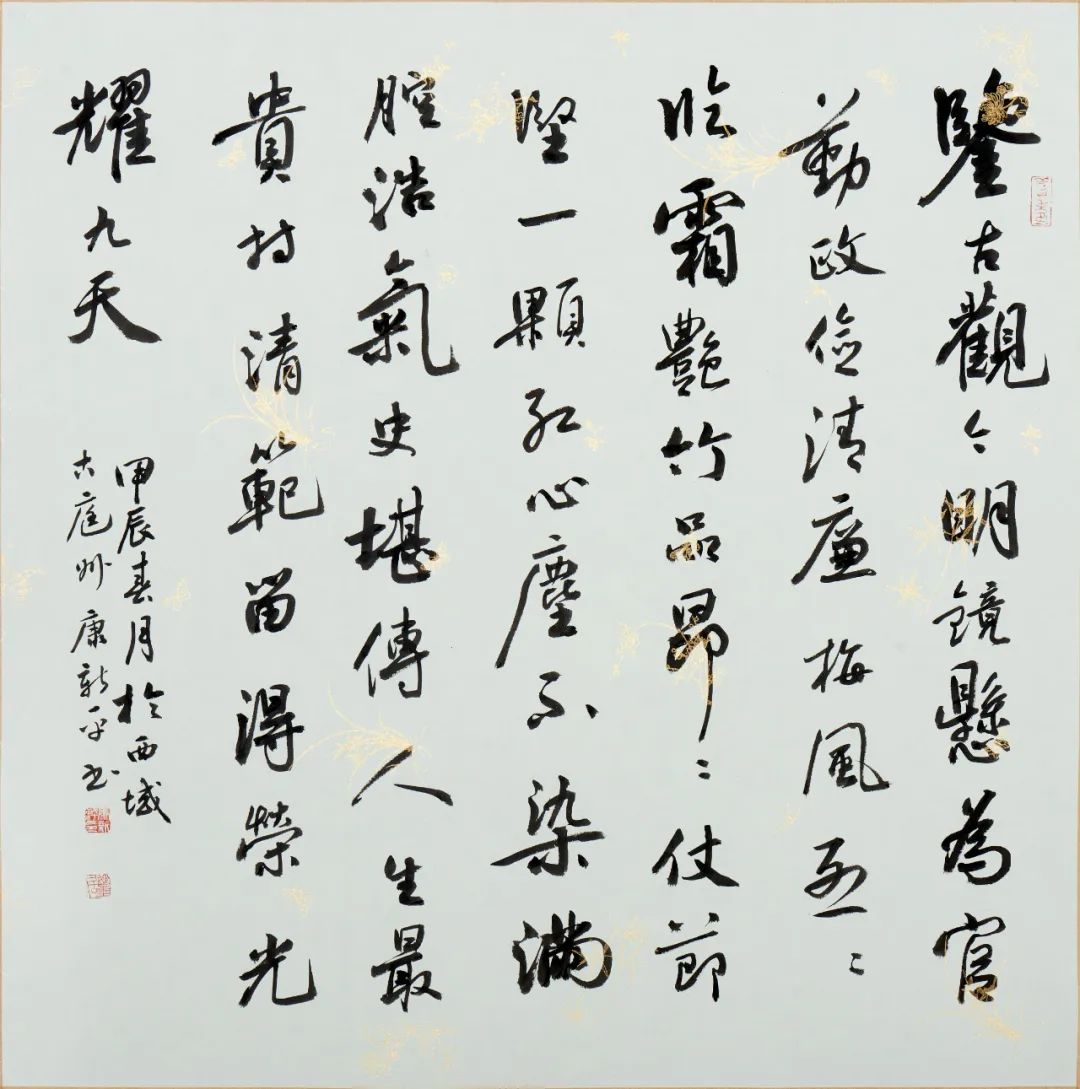 鑒古觀今明鏡懸為官
勤政儉清廉梅風烈〻
臨霜艷竹品昂〻仗節
堅一顆紅心塵不染滿
腔浩氣史堪傳人生最
貴持清範留得榮光
耀九天
甲辰春月於西域
古庭州康新平書